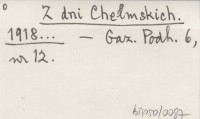 Z dni Chełmskich.
1918... — Gaz. Podh. 6,
nr 12.